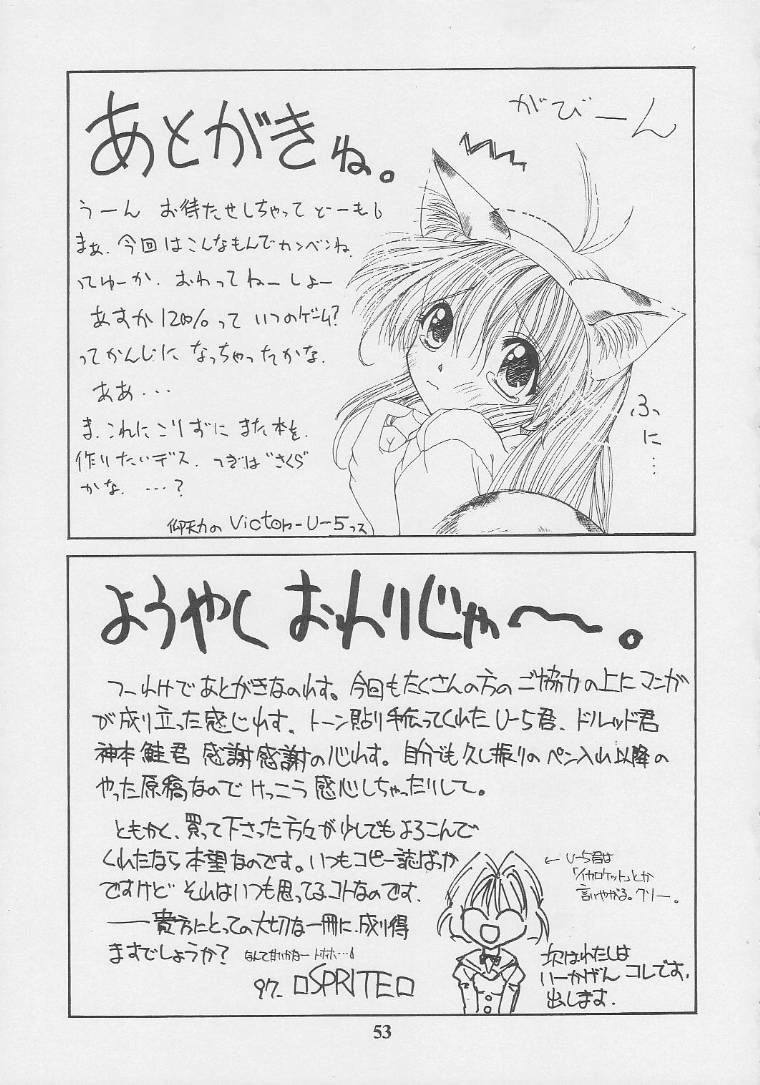 あとがきね。
がびーん
うーん お待たせしちゃって どーも
まぁ、今回はこんなもんでカンベンね。
ってゆーか、おわってねーしょー
あすか120%って いつのゲーム?
ってかんじに なっちゃったかな。
ああ・・・
ま、これにこりずに また本を
作りたいデス。 つぎは"さくら"
かな。 ・・・?
ふに…
Victor-U-5っス
ようやく おわりじゃ〜〜。
つーわけであとがきなのれす。今回もたくさんの方のご協力の上にマンガ
が成り立った感じれす。トーン貼り手伝ってくれたU-5君、ドルッド君
神本 鮭君 感謝感謝の心れす。自分でも久し振りのペン入れ以降の
やった原稿なので けっこう感心しちゃったりして。
ともかく、買って下さった方々が少しでもよろこんで
くれたなら本望なのです。いつもコピー誌ばっか
ですけど それはいつも思ってるコトなのです。
――貴方にとっての大切な一冊に、成り得
ますでしょうか? なんて甘いかなー トホホ…
97_ □SPRITE□
← U-5君は
「イカロケット」とか
言いやがる。クソー。
次はわたしは
いーかげん コレです。
出します。
53